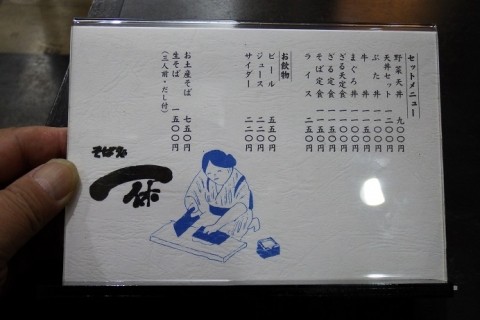 セットメニュー
野菜天丼 九〇〇円
天丼セット 一二〇〇円
ぶた丼 一〇〇〇円
牛丼
まぐろ丼
ざる天定食
ざる定食
そば定食
ライス 二五〇円
お飲物
ビール 五五〇円
ジュース 二二〇円
サイダー 二二〇円
お土産そば 七五〇円
生そば 一五〇〇円
(三人前・だし付)
そば処
一休